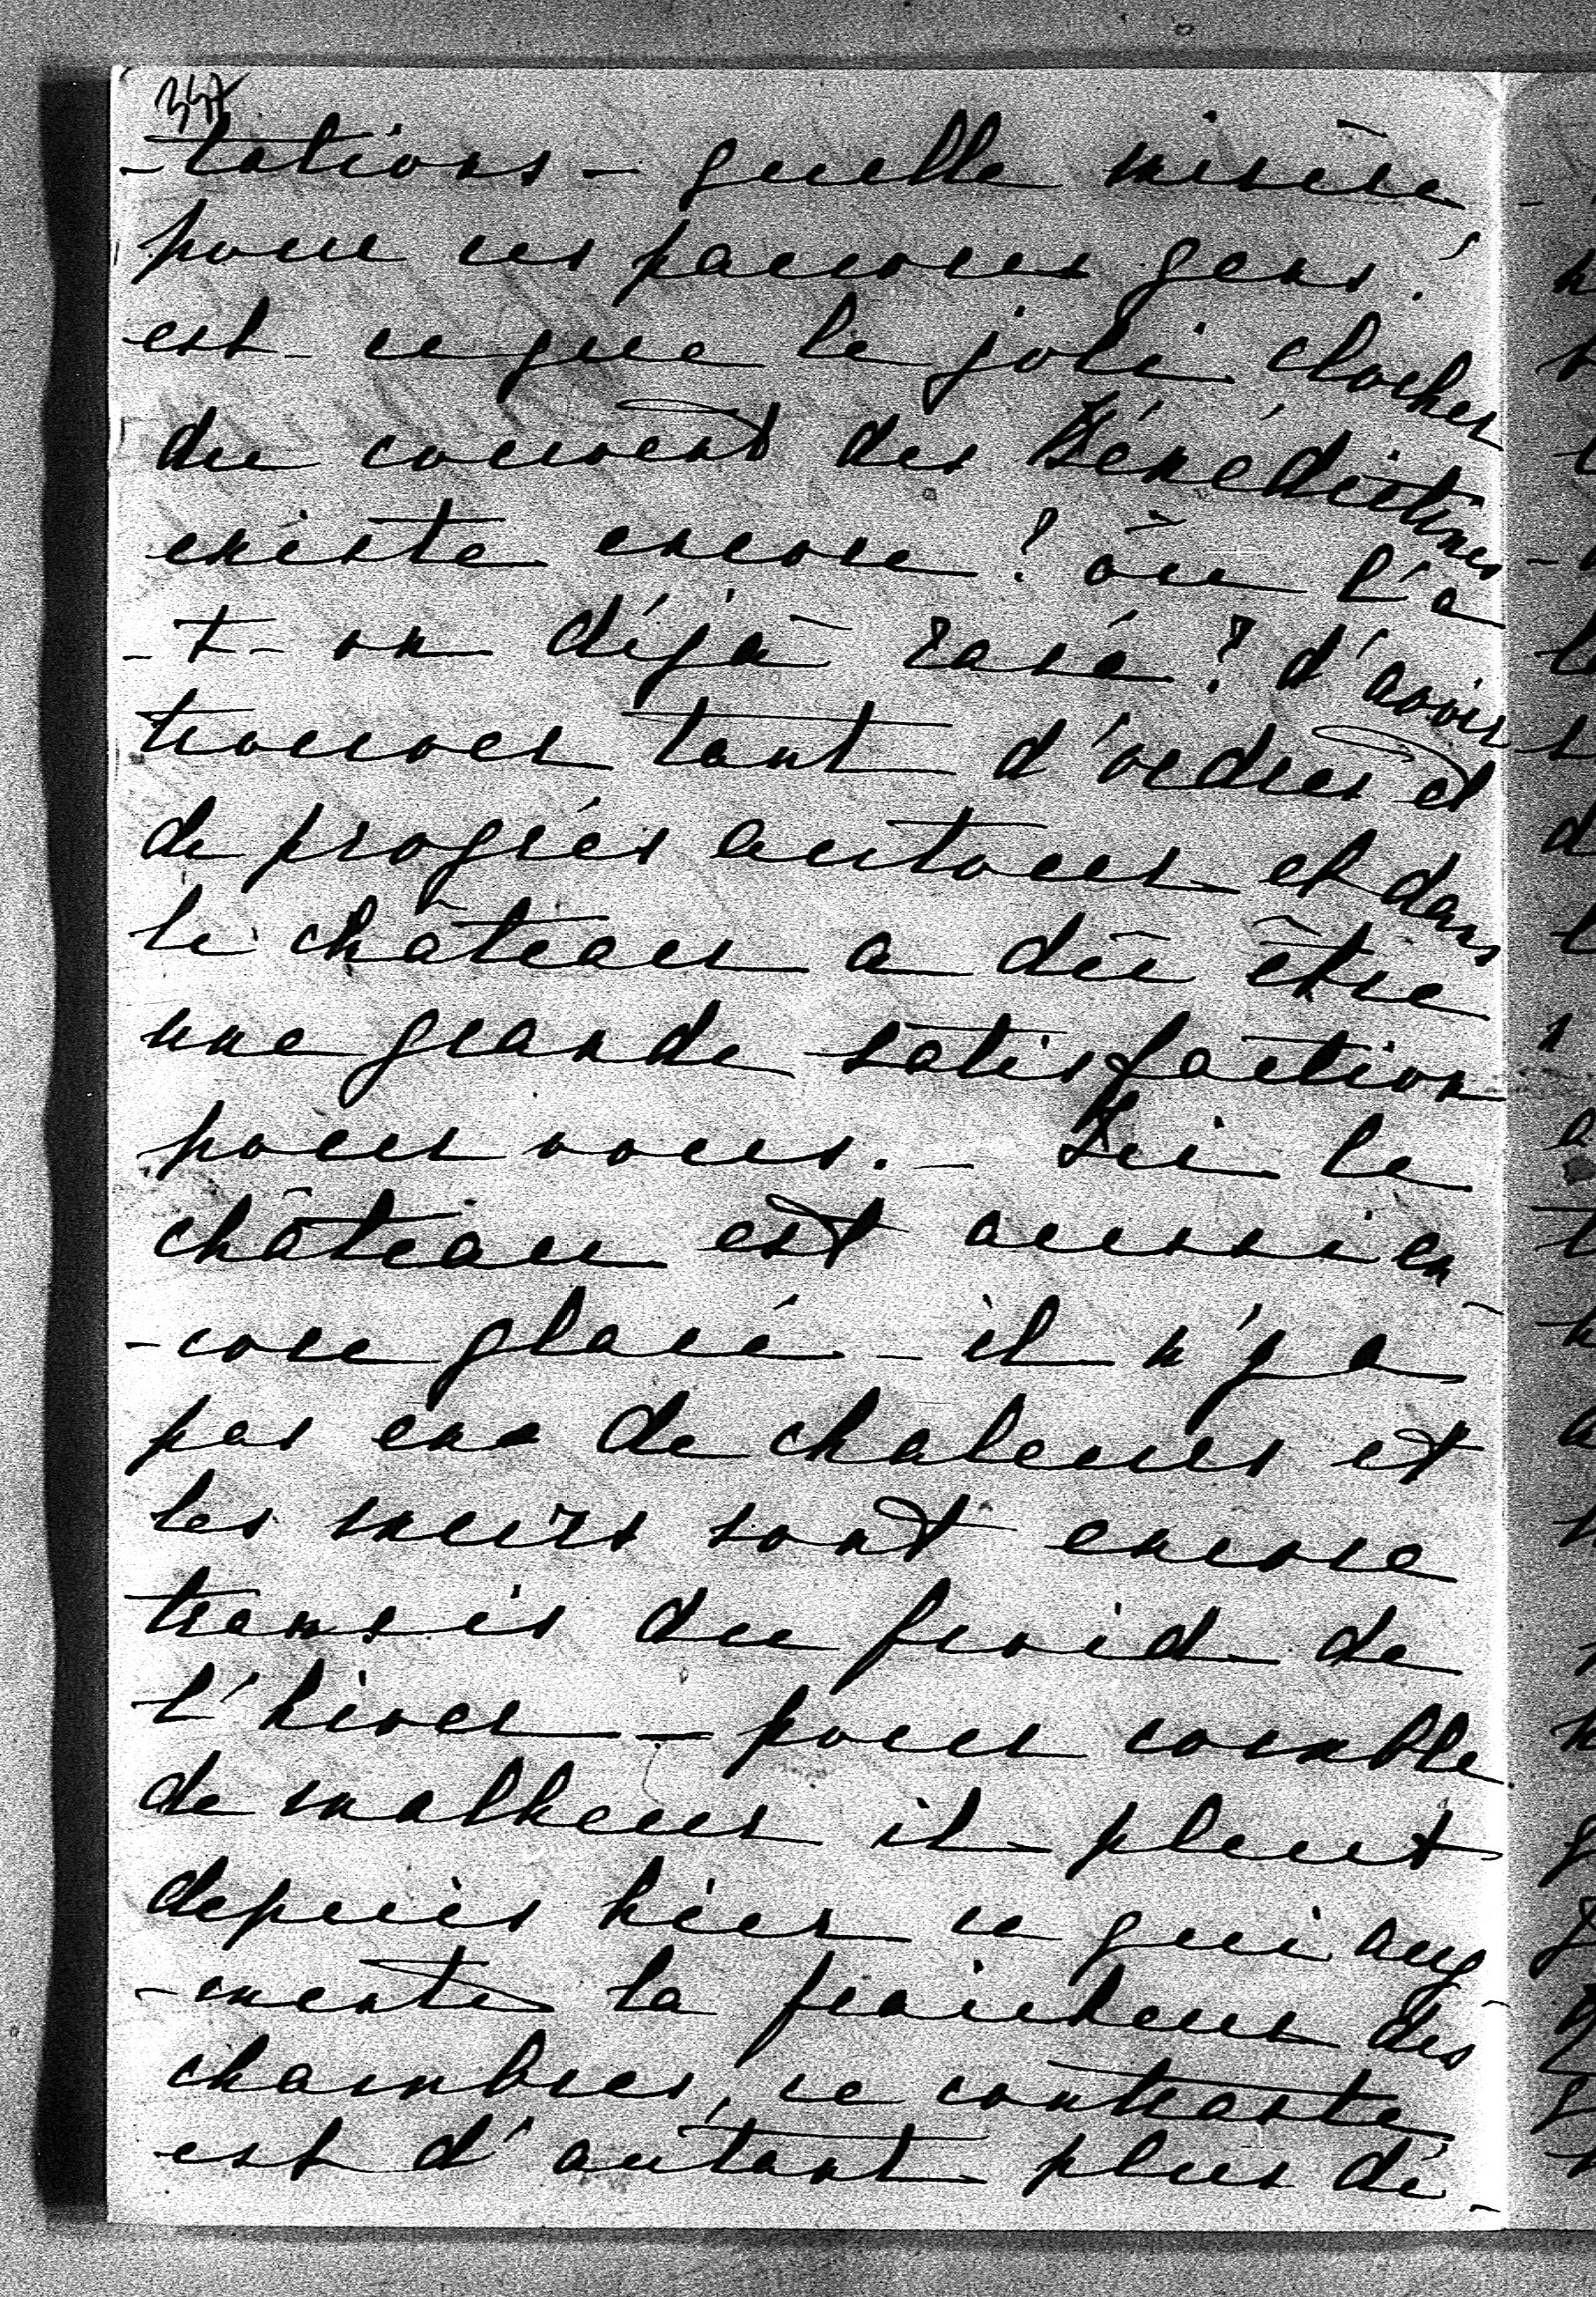 347
-tations - quelle misère
pour ces pauvres gens!
est-ce que le joli clocher
du couvent des Bénédictines
existe encore? où l'a
-t-on déjà rasé? d'avoir
trouver tant d'ordres et
de progrès autour et dans
le château a dû être
une grande satisfaction
pour vous. - Ici le
château est aussi en
-core glacé - il n'y a
pas eu de chaleurs et
les murs sont encore
transis du froid de
l'hiver - pour comble
de malheur il pleut
depuis hier ce qui aug
-mente la fraicheur des
chambres, ce contraste
est d'autant plus dé-